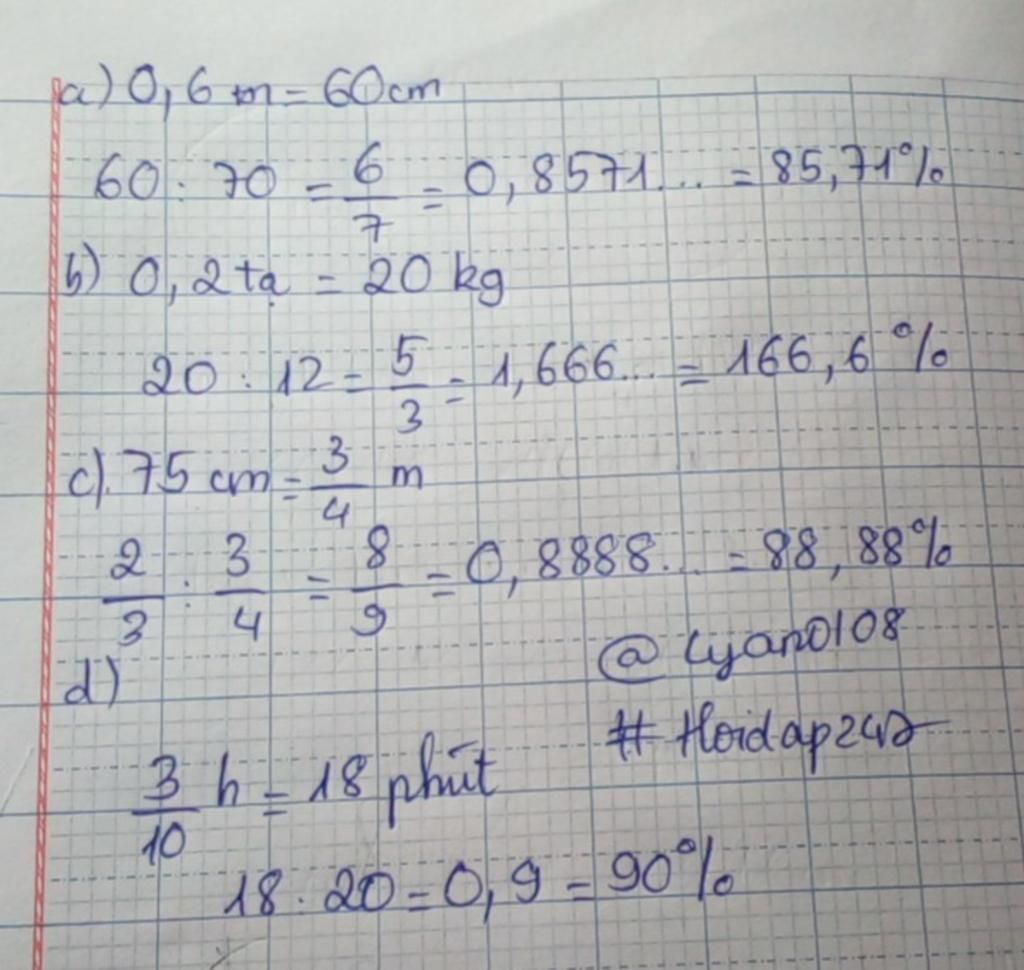 a) 0,6 m = 60cm
60 : 70 = 6/7 = 0,8571... = 85,71%
b) 0,2 tạ = 20 kg
20 : 12 = 5/3 = 1,666... = 166,6 %
c). 75 cm = 3/4 m
2/3 : 3/4 = 8/9 = 0,8888... = 88,88%
d)
@ Lyan0108
# Hoidap247
3/10 h = 18 phút
18 : 20 = 0,9 = 90%